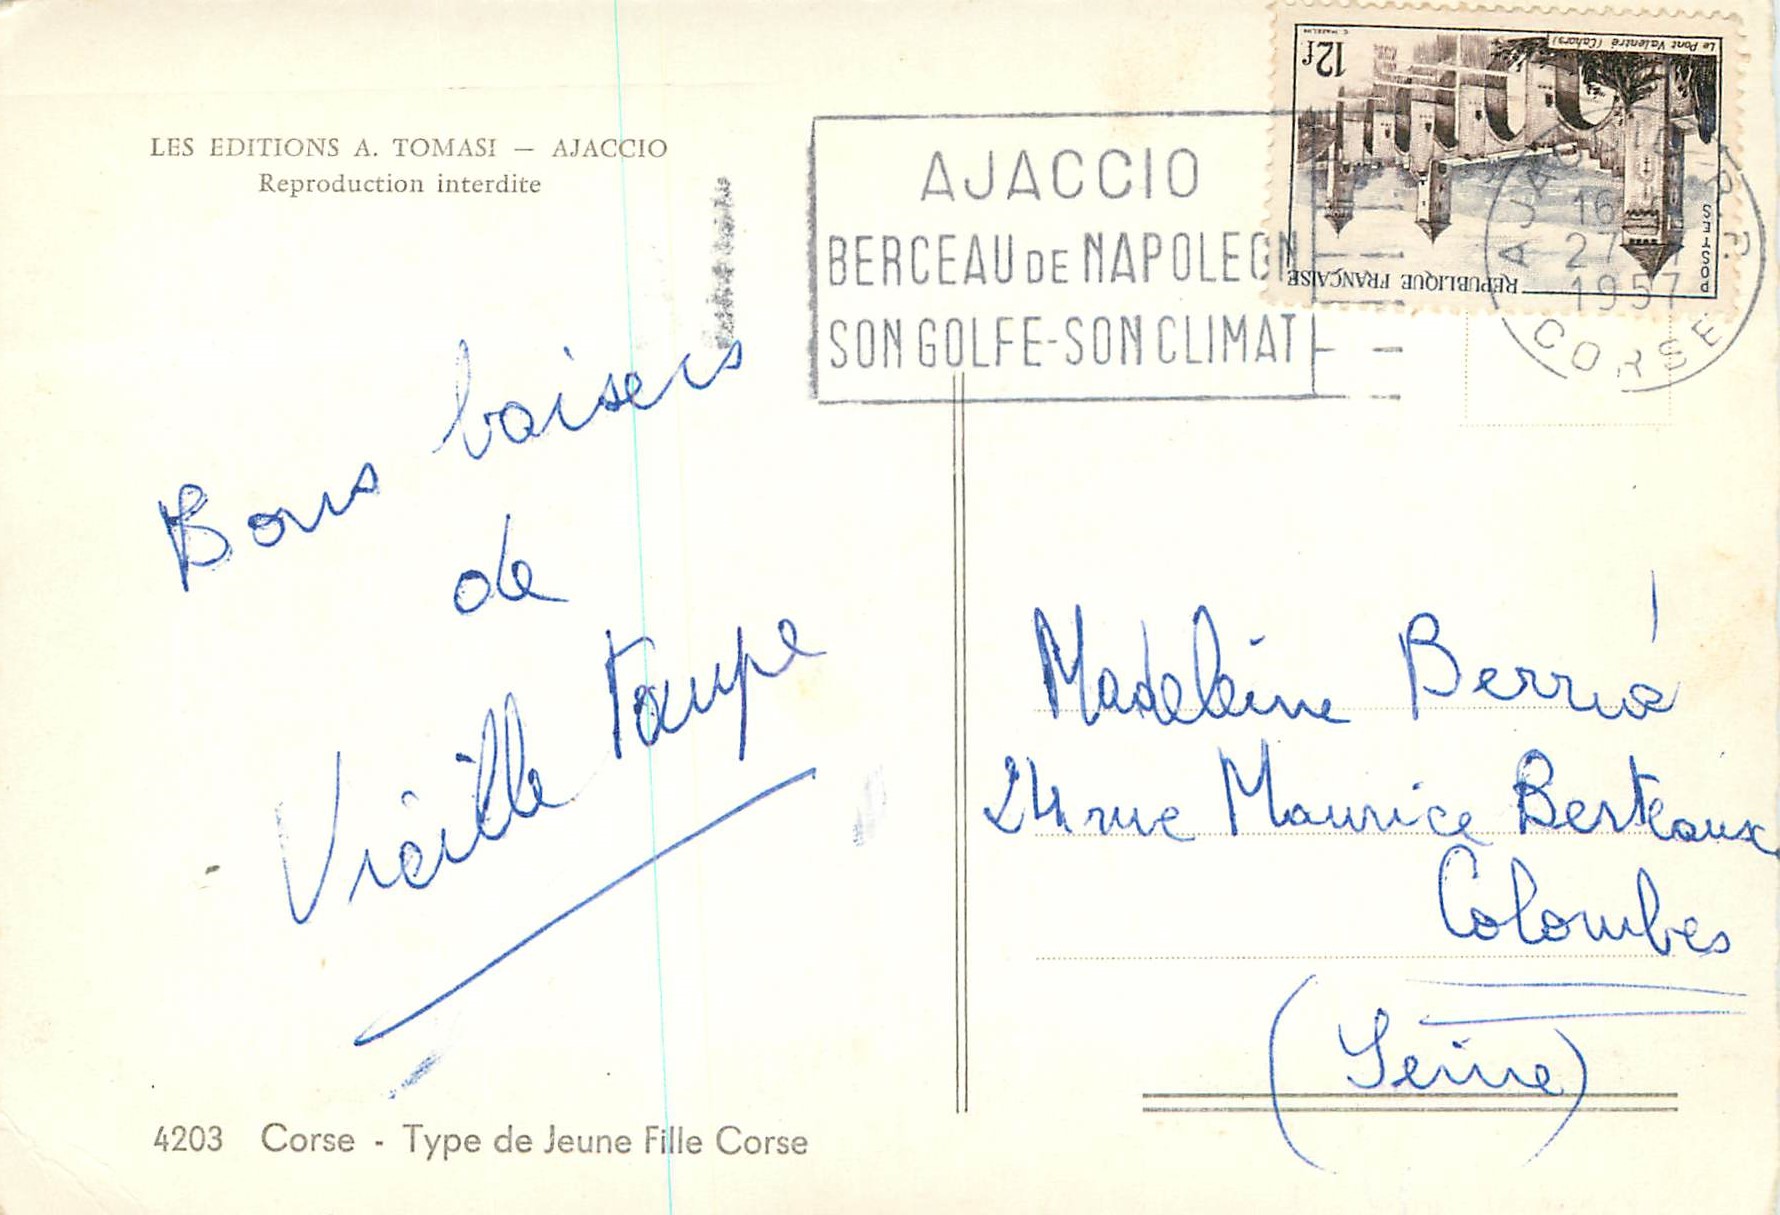 LES EDITIONS A. TOMASI — AJACCIO
Reproduction interdite
Bons baisers
de
Vieille Taupe
4203 Corse - Type de Jeune Fille Corse
AJACCIO
BERCEAU DE NAPOLEON
SON GOLFE-SON CLIMAT
Le Pont Valentré (Cahors)
12f
C. MAZELIN
POSTES
REPUBLIQUE FRANÇAISE
AJACCIO R.P.
16
27
1957
CORSE
Madeleine
24 rue Maurice Berteaux
Colombes
(Seine)